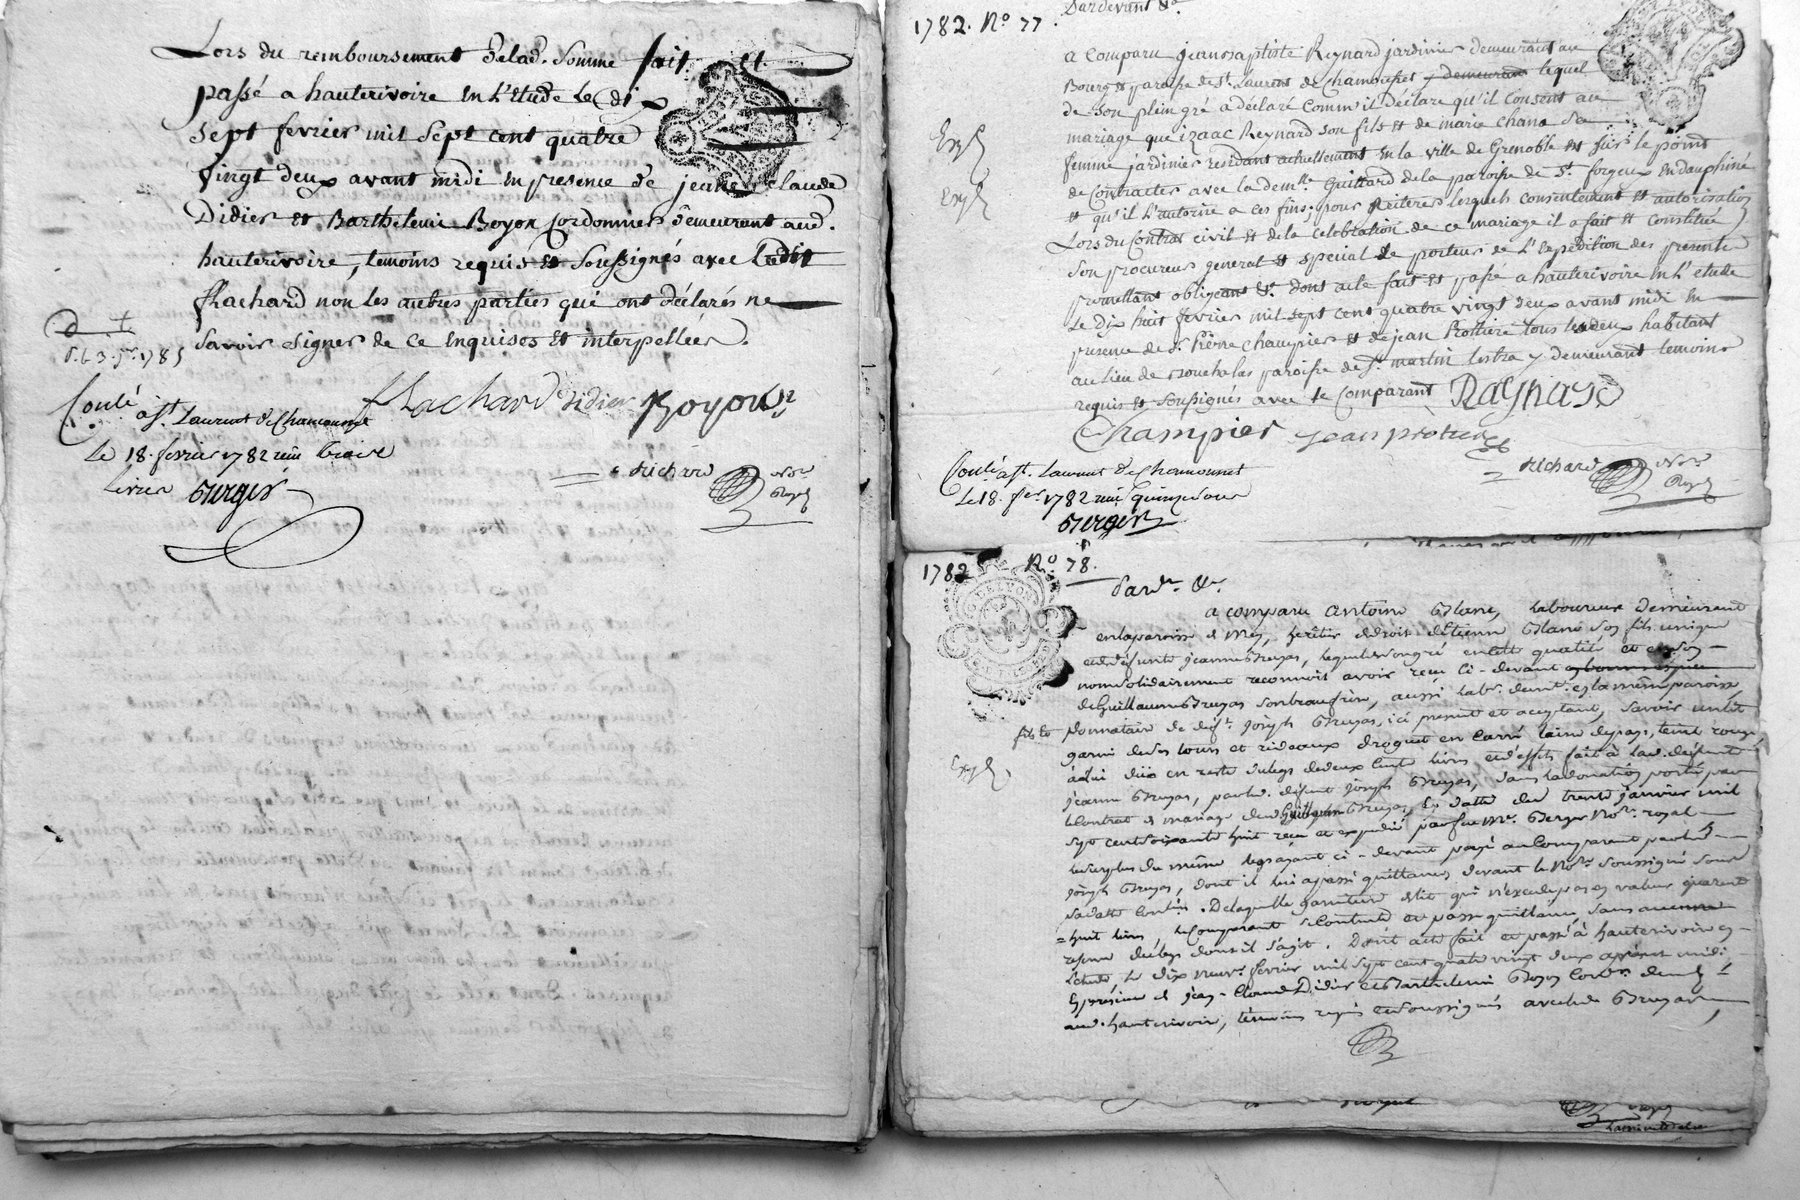 Lors du remboursement delad. Somme fait et
passé a hauterivoire En L'Etude Le dix
sept fevrier mil Sept cent quatre
vingt deux avant midi En presence de jean claude
Didier et Barthelemi Boyon Cordonnier demeurant aud.
hauterivoire, temoins requis et Soussignés avec Ledit
flachard non les autres parties qui ont déclarés ne
Savoir Signer de ce Enquises et interpellées.
1785
flachard Didier Boyon
Conlé a St. Laurent de Chamousset
Le 18. fevrier 1782 reçu treize
livres Berger
Richard Nore
Royal
1782. No 77.
Pardevant &a
a Comparu jean Baptiste Reynard jardinier demeurant au
Bourg et paroisse de St. Laurent de Chamousset demeurant lequel
de Son plein gré a déclaré Comm'il déclare qu'il Consent au
mariage que izaac Reynard Son fils et de marie chana Sa
femme jardinier residant actuellement En la ville de Grenoble est Sur le point
de Contracter avec la demlle Guittard de la paroisse de St. forgeux En dauphiné
et qu'il L'autorise a ces fins; pour Reiterer lesquels consentement et autorisation
Lors du Contrat civil et de la Celebration de ce mariage il a fait et Constitué
Son procureur general et special le porteur de L'Expedition des presentes
promettant obligeant &a. dont acte fait et passé a hauterivoire En L'etude
Le Dix huit fevrier mil Sept cent quatre vingt deux avant midi En
presence de Sr. Pierre Champier et de jean Protiere tous les deux habitant
au Lieu de paroisse de St. martin Lestra y demeurant temoins
requis et Soussignés avec le Comparant Raynard
Champier jean protiere
Conlé a St. Laurent de Chamousset
Le 18. fer. 1782 reçu quinze sous
Berger
Richard Nore
Royal
1782 No. 78.
Pardt. &a.
a comparu antoine Blanc, Laboureur demeurant
en la paroisse de Meys, heritier de droit d'Etienne Blanc Son fils unique
et de defunte jeanne Bruyas, lequel de Son gré en cette qualité et en Son
nom Solidairement reconnoit avoir reçu ci-devant
de Guillaume Bruyas Son beaufrere, aussi labr. demt. en la même paroisse
fils et
donnataire de deft. joseph Bruyas, ici present et acceptant, Savoir un lit
garni de Ses tours et rideaux droguet en Carré laine du pays, teint rouge,
a lui dûx en reste du legs de deux Cents livres et d'effets fait à lad. defunte
jeanne Bruyas, par led. defunt joseph Bruyas, dans la donation portée par
le Contrat de mariage dud. Guillaume Bruyas, en datte du trente janvier mil
Sept cent Soixante huit reçu et expedié par feu Me. Berger Nore. royal
le Surplus du même legs ayant ci-devant payé au Comparant par led.
joseph Bruyas, dont il lui a passé quittance devant le Nore. Soussigné Sous
Sa datte Contée. De laquelle garniture de lit qui n'excede pas en valeur quarente
huit livres le Comparant Se Contente et en passe quittance Sans aucune
reserve du legs dont il S'agit. Dont acte fait et passé à hauterivoire en
L'étude Le Dix neuve. fevrier mil Sept cent quatre vingt deux après midi
En presence de jean-Claude Didier et Barthelemi Boyon Cordr. demt.
aud. hauterivoire, témoins requis et Soussignés avec led. Bruyas,